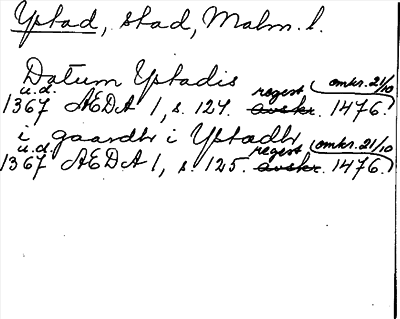 Ystad, stad, Malm. l.
Datum Ystadis
u.d. regest omkr. 21/10
1367 ÆDA 1, s. 124. avskr. 1476.
i gaardh i Ystadh
u.d. regest omkr. 21/10
1367 ÆDA 1, s. 125. avskr. 1476.